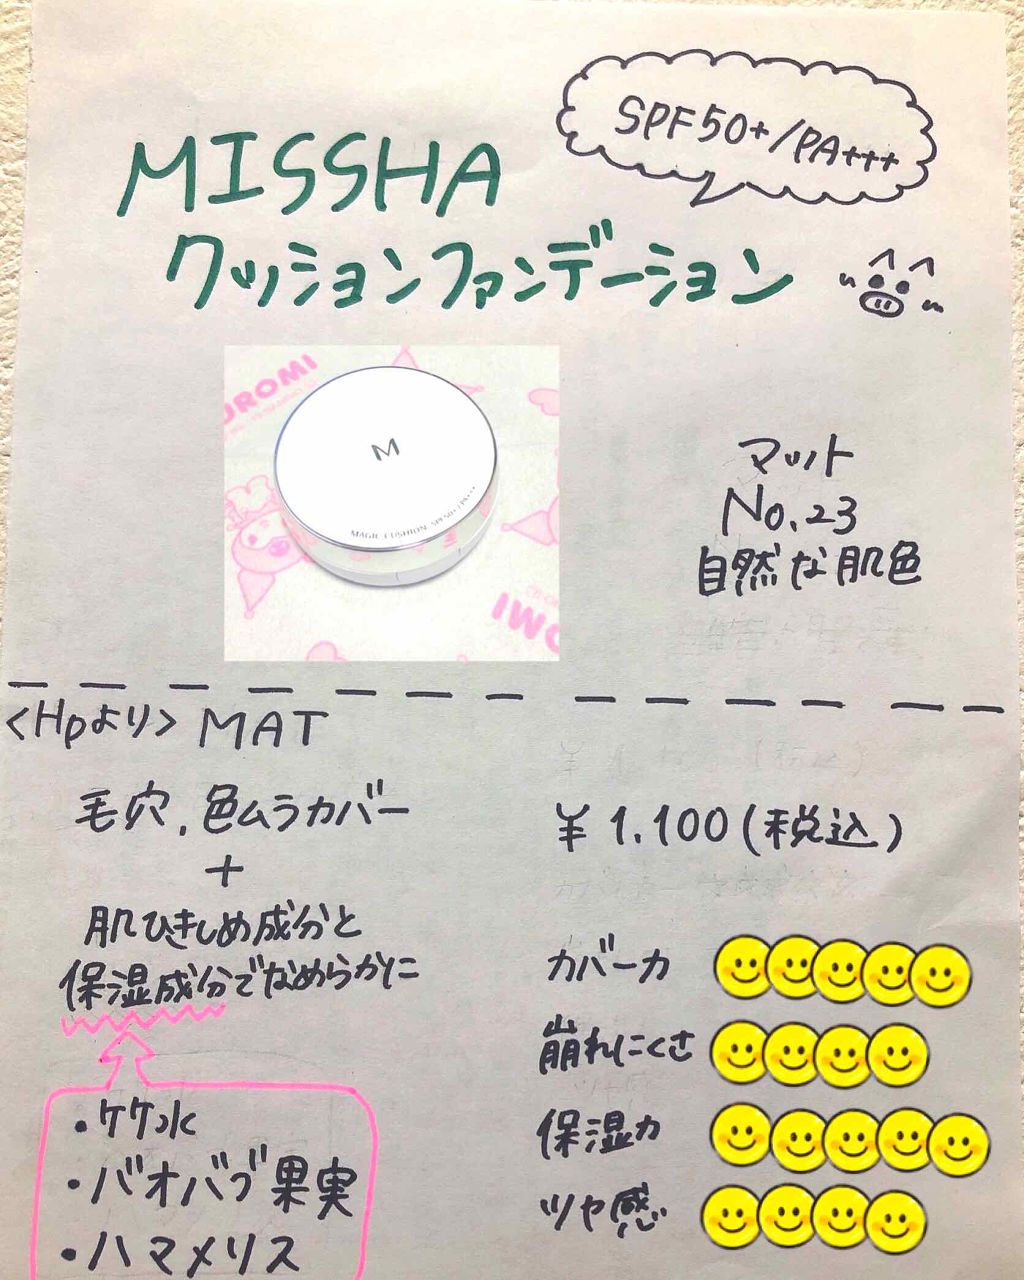 SPF50+/PA+++
MISSHA
クッションファンデーション
UROMI
M
MAGIC CUSHION SPF50+/PA+++
IWO
マット
No.23
自然な肌色
<Hpより> MAT
毛穴,色ムラカバー
+
肌ひきしめ成分と
保湿成分でなめらかに
・ケケ水
・バオバブ果実
・ハマメリス
¥1.100(税込)
カバー力
崩れにくさ
保湿力
ツヤ感